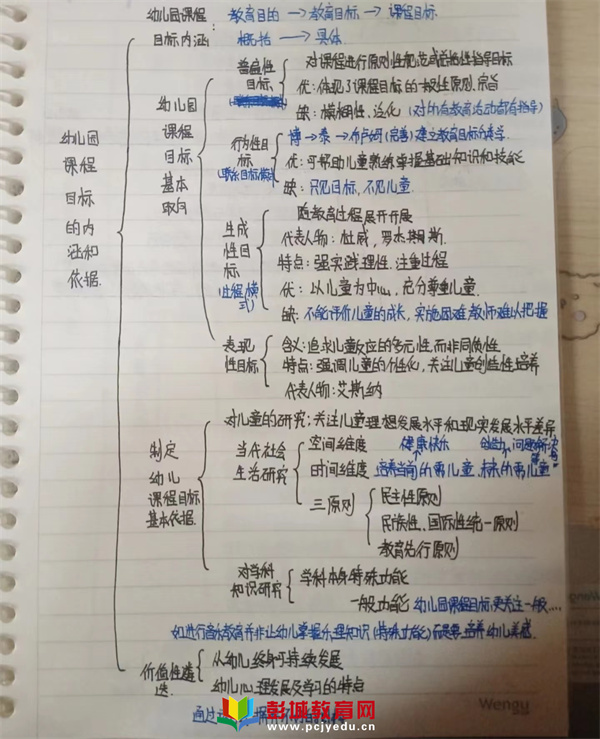 幼儿园课程目标内涵：教育目的→教育目标→课程目标
概括→具体
幼儿园课程目标的内涵和依据
幼儿园课程目标基本取向
普遍性目标
对课程进行原则性规范或总括性指导目标
优：体现了课程目标的一般性原则、宗旨
缺：模糊性、泛化（对所有教育活动都有指导）
行为性目标
博→泰→布卢姆（完善）建立教育目标分类学
优：可帮助儿童熟练掌握基础知识和技能
缺：只见目标，不见儿童
生成性目标（过程模式）
随教育过程展开开展
代表人物：杜威，罗杰斯
特点：强实践理性、注重过程
优：以儿童为中心，充分尊重儿童
缺：不能评价儿童的成长，实施困难，教师难以把握
表现性目标
含义：追求儿童反应的多元性，而非同质性
特点：强调儿童的个性化，关注儿童创造性培养
代表人物：艾斯纳
制定幼儿课程目标基本依据
对儿童的研究：关注儿童理想发展水平和现实发展水平差异
当代社会生活研究
空间维度 健康快乐
时间维度 培养当前的需儿童，未来的需儿童
三原则
民主性原则
民族性、国际性统一原则
教育先行原则
对学科知识研究
学科本身特殊功能
一般功能 幼儿园课程目标更关注一般....
如进行音乐教育并非让幼儿掌握乐理知识（特殊功能）而是要培养幼儿美感.
价值性筛选
从幼儿终身可持续发展
幼儿心理发展及学习的特点
通过
彭城教育网
www.pcjyedu.cn
Wengu